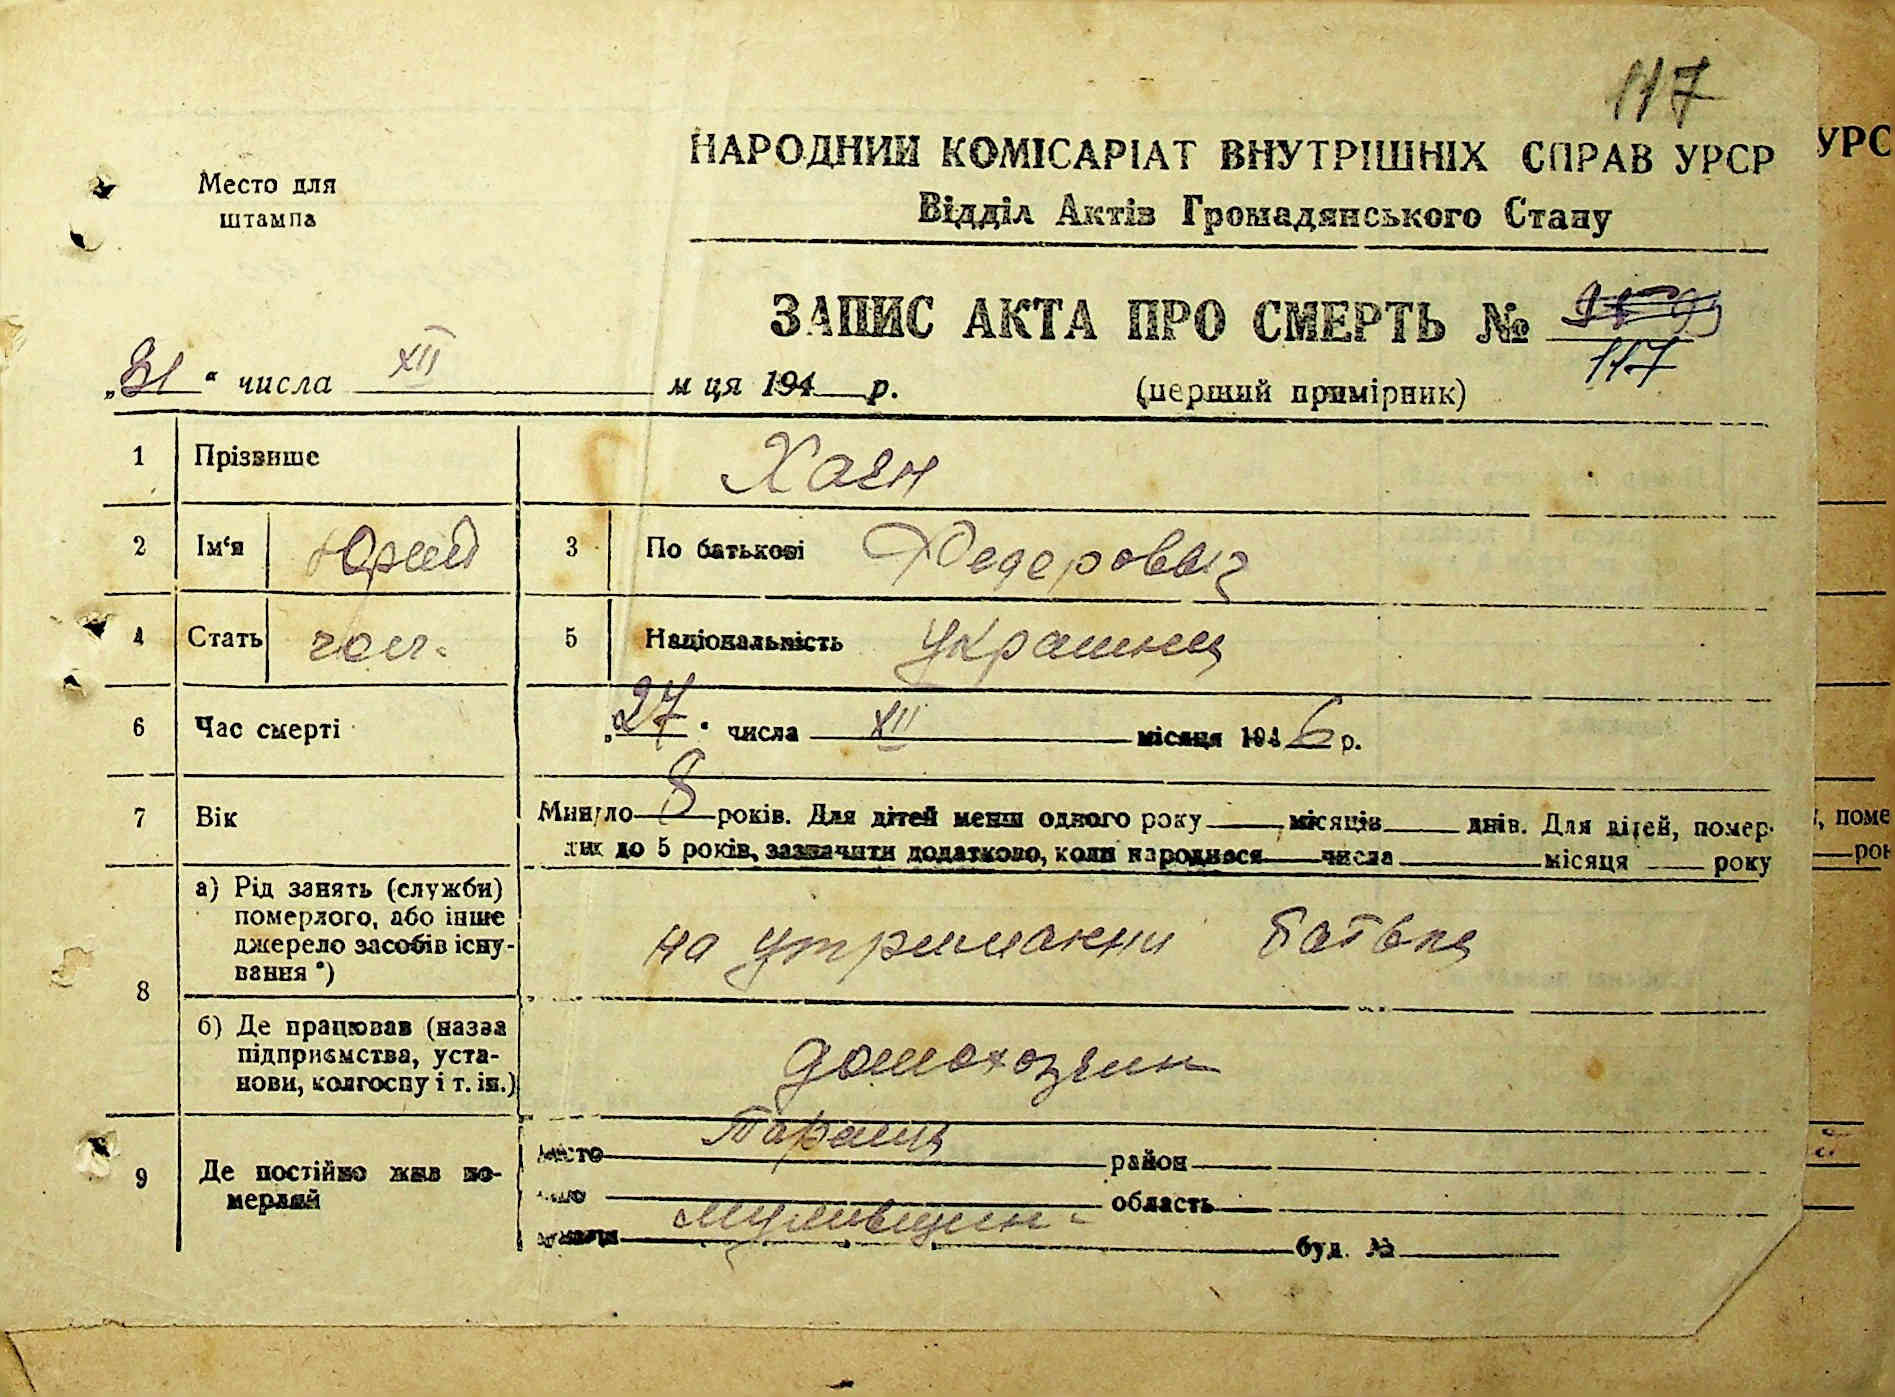 117
НАРОДНИЙ КОМІСАРІАТ ВНУТРІШНІХ СПРАВ УРСР
УРС
Место для
штампа
Відділ Актів Громадянського Стану
ЗАПИС АКТА ПРО СМЕРТЬ №
117
„31“ числа XII м ця 194 р.
(перший примірник)
1 Прізвище Хаєн
2 Ім'я Юрий 3 По батькові Федерович
4 Стать чол. 5 Національність українец
6 Час смерті „27“ числа XII місяця 1946 р.
7 Вік Минуло 8 років. Для дітей менш одного року місяців днів. Для дітей, помер-
лих до 5 років, зазначити додатково, коли народився числа місяця року
, поме
рок
8 а) Рід занять (служби)
померлого, або інше
джерело засобів існу-
вання *)
на утриманни батька
б) Де працював (назва
підприємства, уста-
нови, колгоспу і т. ін.)
домохозяин
9 Де постійно жив по-
мерлий
место Тараща район
село область
вулиця буд. №